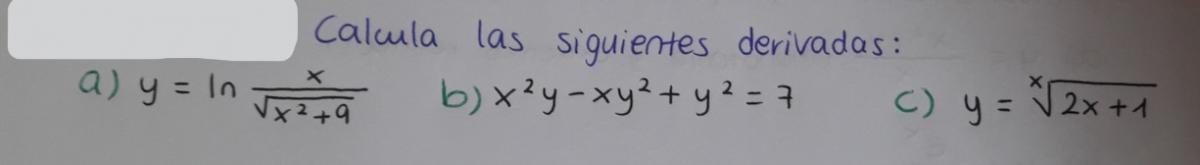 Calcula las siguientes derivadas:
a) y = ln x/√(x²+9) b) x²y - xy² + y² = 7 c) y = ˣ√(2x+1)